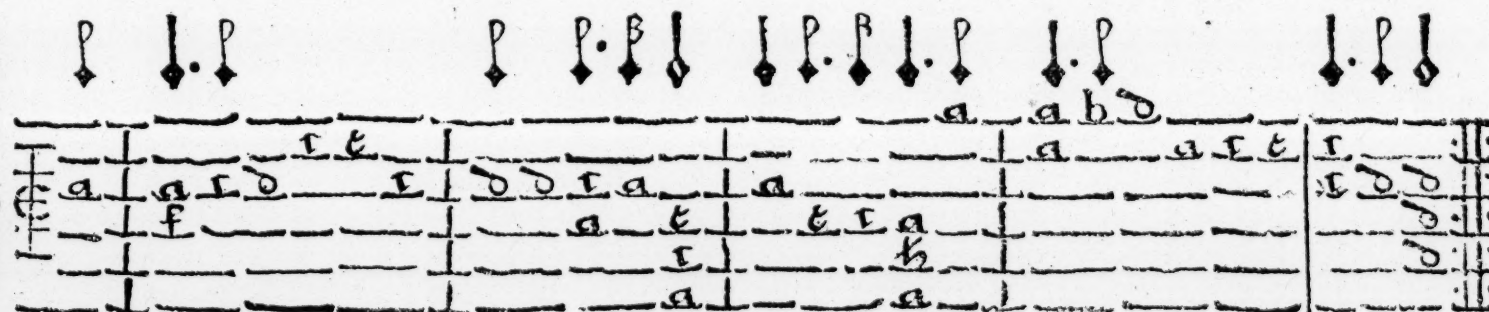 a a b d
r e a a r e r
a a r d r d d r a a r d d
f a e e r a d
r h d
a a